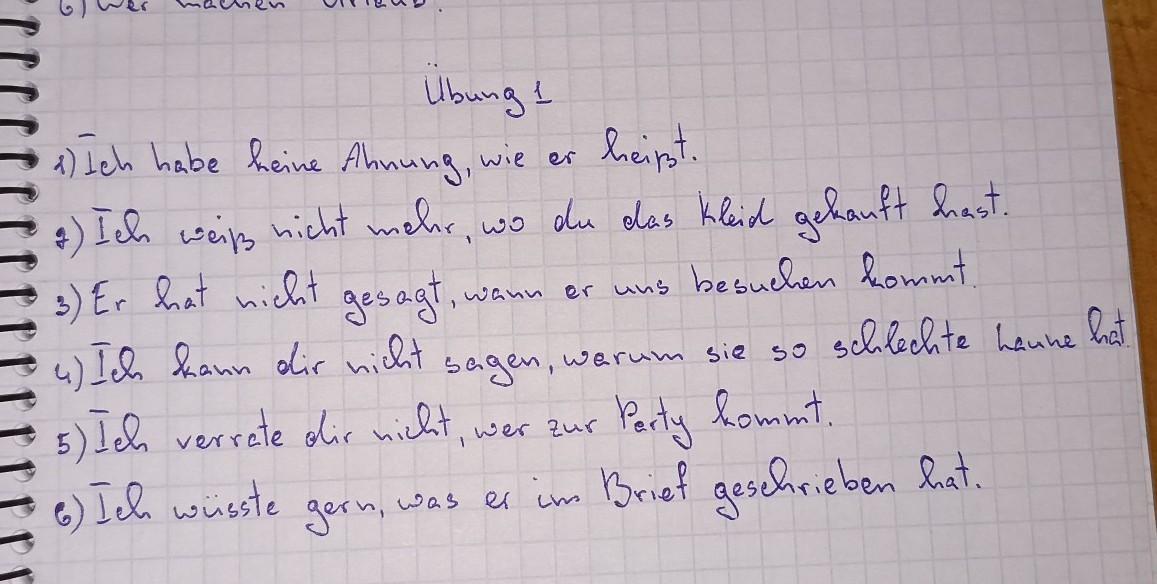 6) Wer machen Urlaub.
Übung 1
1) Ich habe keine Ahnung, wie er heißt.
2) Ich weiß nicht mehr, wo du das Kleid gekauft hast.
3) Er hat nicht gesagt, wann er uns besuchen kommt.
4) Ich kann dir nicht sagen, warum sie so schlechte Laune hat.
5) Ich verrate dir nicht, wer zur Party kommt.
6) Ich wüsste gern, was er im Brief geschrieben hat.